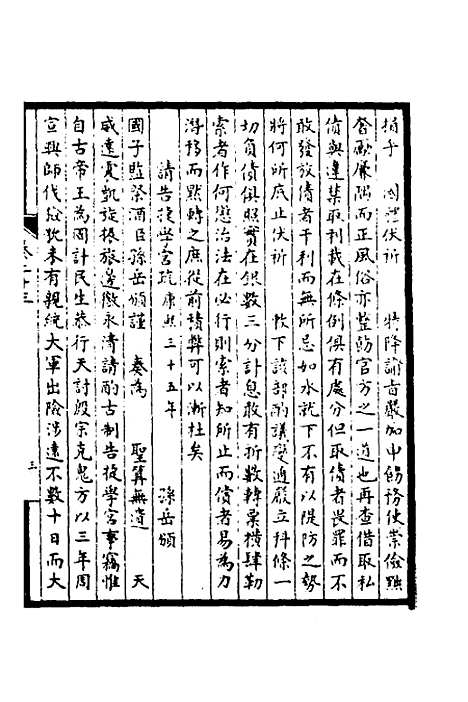 損乎　國體伏祈　特降諭旨嚴加申飭務使崇儉黜
奢勵廉隅而正風俗亦整飭官方之一道也再查借取私
債與違禁取利載在條例俱有處分但取債者畏罪而不
敢發放債者干利而無所忌如水就下不有以隄防之勢
將何所底止伏祈　敕下該部酌議變通嚴立科條一
切負債俱照實在銀數三分計息敢有折數轉票橫肆勒
索者作何懲治法在必行則索者知所止而債者易為力
潛移而默轉之庶從前積弊可以漸杜矣
請告復學宮疏康熙三十五年　孫岳頒
國子監祭酒臣孫岳頒謹　奏為　聖算無遺　天
威遠震凱旋振旅邊徼永清請酌古制告復學宮事竊惟
自古帝王為國計民生恭行天討殷宗克鬼方以三年周
宣興師伐玁狁未有親統大軍出險涉遠不數十日而大
卷二十三
三